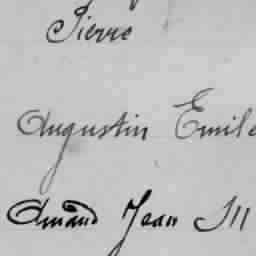 Pierre
Augustin Emile
Amand Jean